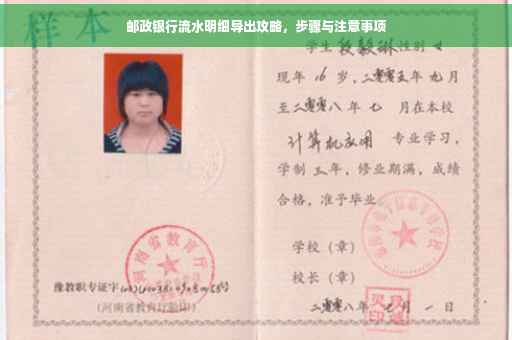 邮政银行流水明细导出攻略，步骤与注意事项
样本
学生段毅琳性别女
现年16岁，二零零五年九月
至二零零八年七月在本校
计算机应用专业学习，
学制三年，修业期满，成绩
合格，准予毕业。
学校（章）
校长（章）
二零零八年七月一日
河南省教育厅
豫教职专证字
（河南省教育厅验印）